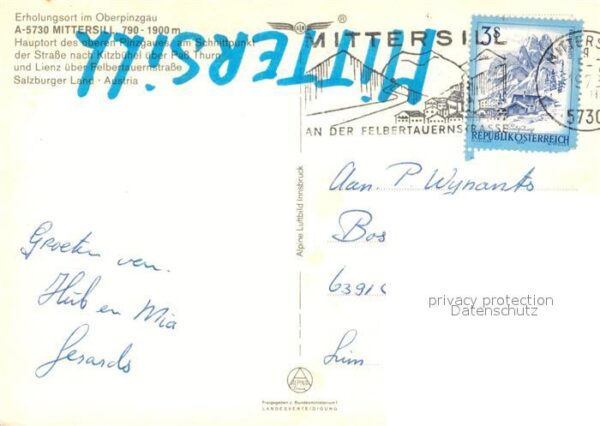 Erholungsort im Oberpinzgau
A-5730 MITTERSILL, 790 - 1900 m
Hauptort des oberen Pinzgaues, am Schnittpunkt
der Straße nach Kitzbühel über Paß Thurn
und Lienz über Felbertauernstraße
Salzburger Land · Austria
MITTERSILL
®
MITTERSILL
AN DER FELBERTAUERNSTRASSE
3S
REPUBLIK ÖSTERREICH
MITTERS
5730
Alpine Luftbild Innsbruck
Aan P Wynants
Bos
6391
Lim
Groeten van
Hub en Mia
Gerards
privacy protection
Datenschutz
ALPINE
Freigegeben v. Bundesministerium f.
LANDESVERTEIDIGUNG